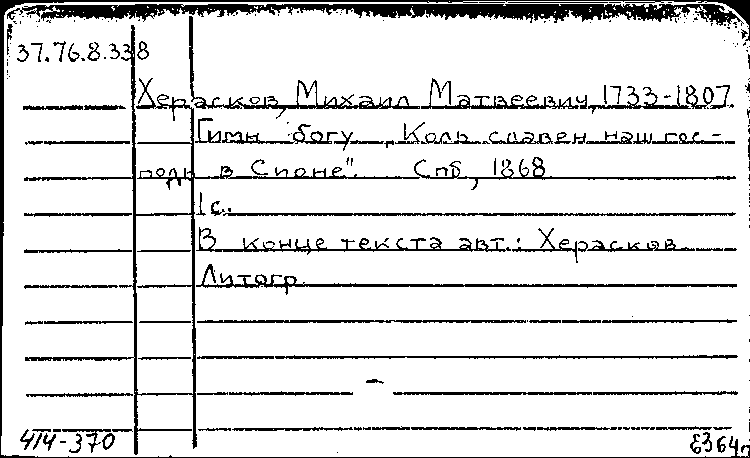 37.76.8.338
Херасков, Михаил Матвеевич, 1733-1807
Гимн богу „Коль славен наш гос-
подь в Сионе". Спб, 1868
1 с.
В конце текста авт.: Херасков
Литогр.
414-370